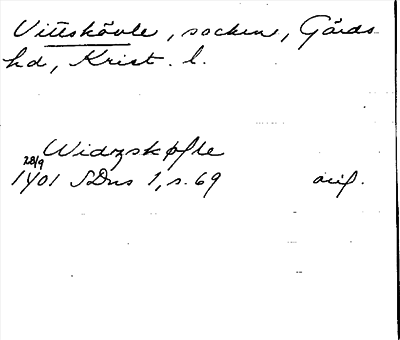 Vittskövle, socken, Gärds
hd, Krist. l.
Widzskøfle
28/9
1401 SDns 1, s. 69 avig.